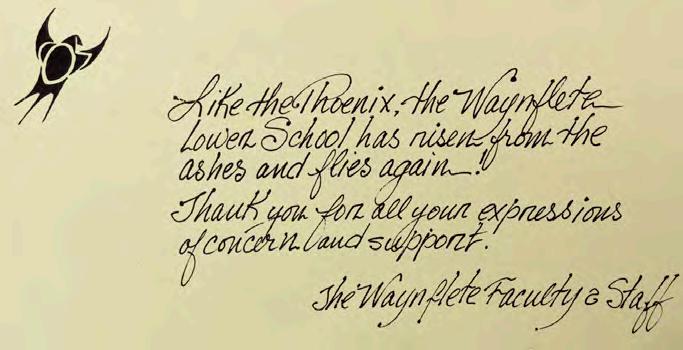 Like the Phoenix, the Waynflete
Lower School has risen from the
ashes and flies again!
Thank you for all your expressions
of concern and support.
The Waynflete Faculty & Staff